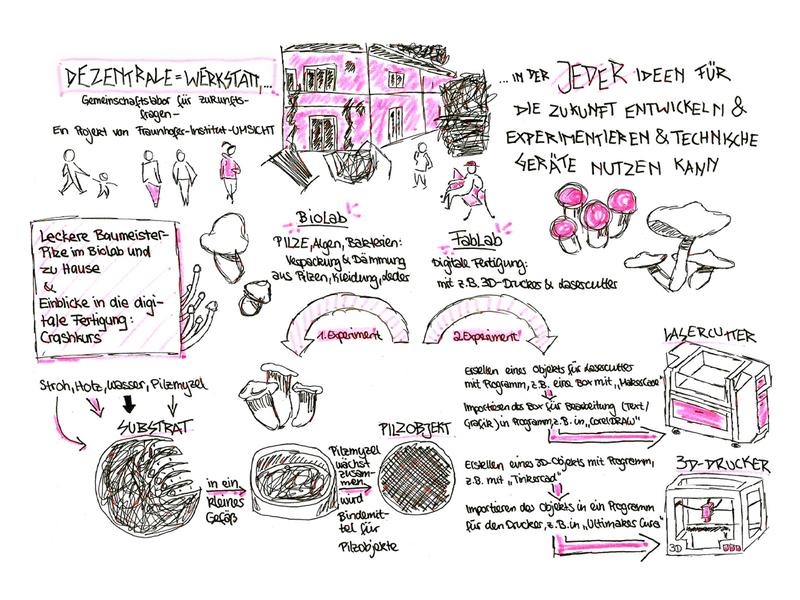 DEZENTRALE = WERKSTATT,...
Gemeinschaftslabor für zukunfts-
fragen -
Ein Projekt von Fraunhofer-Institut-UMSICHT
... IN DER JEDER IDEEN FÜR
DIE ZUKUNFT ENTWICKELN &
EXPERIMENTIEREN & TECHNISCHE
GERÄTE NUTZEN KANN
Leckere Baumeister-
Pilze im BioLab und
zu Hause
&
Einblicke in die digi-
tale Fertigung:
Crashkurs
BioLab
PILZE, Algen, Bakterien:
Verpackung & Dämmung
aus Pilzen, Kleidung, Leder
FabLab
Digitale Fertigung:
mit z.B. 3D-Drucker & Lasercutter
1. Experiment
2. Experiment
Stroh, Holz, Wasser, Pilzmyzel
SUBSTRAT
in ein
kleines
Gefäß
Pilzmyzel
wächst
zusam-
men
wird
Bindemit-
tel für
Pilzobjekte
PILZOBJEKT
Erstellen eines Objekts für Lasercutter
mit Programm, z.B. eine Box mit „MakesCase"
Importieren der Box für Bearbeitung (Text/
Grafik) in Programm, z.B. in „CorelDRAW"
LASERCUTTER
Erstellen eines 3D-Objekts mit Programm,
z.B. mit „Tinkercad"
Importieren des Objekts in ein Programm
für den Drucker, z.B. in „Ultimaker Cura"
3D-DRUCKER
3D